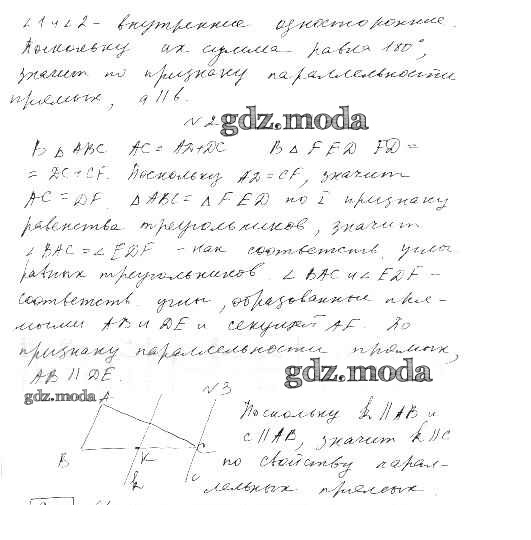 ∠1 и ∠2 - внутренние односторонние.
Поскольку их сумма равна 180°,
значит по признаку параллельности
прямых, a||b.
№2 gdz.moda
В △ABC AC = AD+DC В △FED FD =
= DC+CF. Поскольку AD=CF, значит
AC=DF. △ABC=△FED по I признаку
равенства треугольников, значит
∠BAC=∠EDF - как соответств. углы
равных треугольников. ∠BAC и ∠EDF -
соответств. углы, образованные пря-
мыми AB и DE и секущей AF. По
признаку параллельности прямых,
AB || DE.
gdz.moda
gdz.moda
A
№3
B
K
C
k
c
Поскольку k||AB и
c||AB, значит k||c
по свойству парал-
лельных прямых.